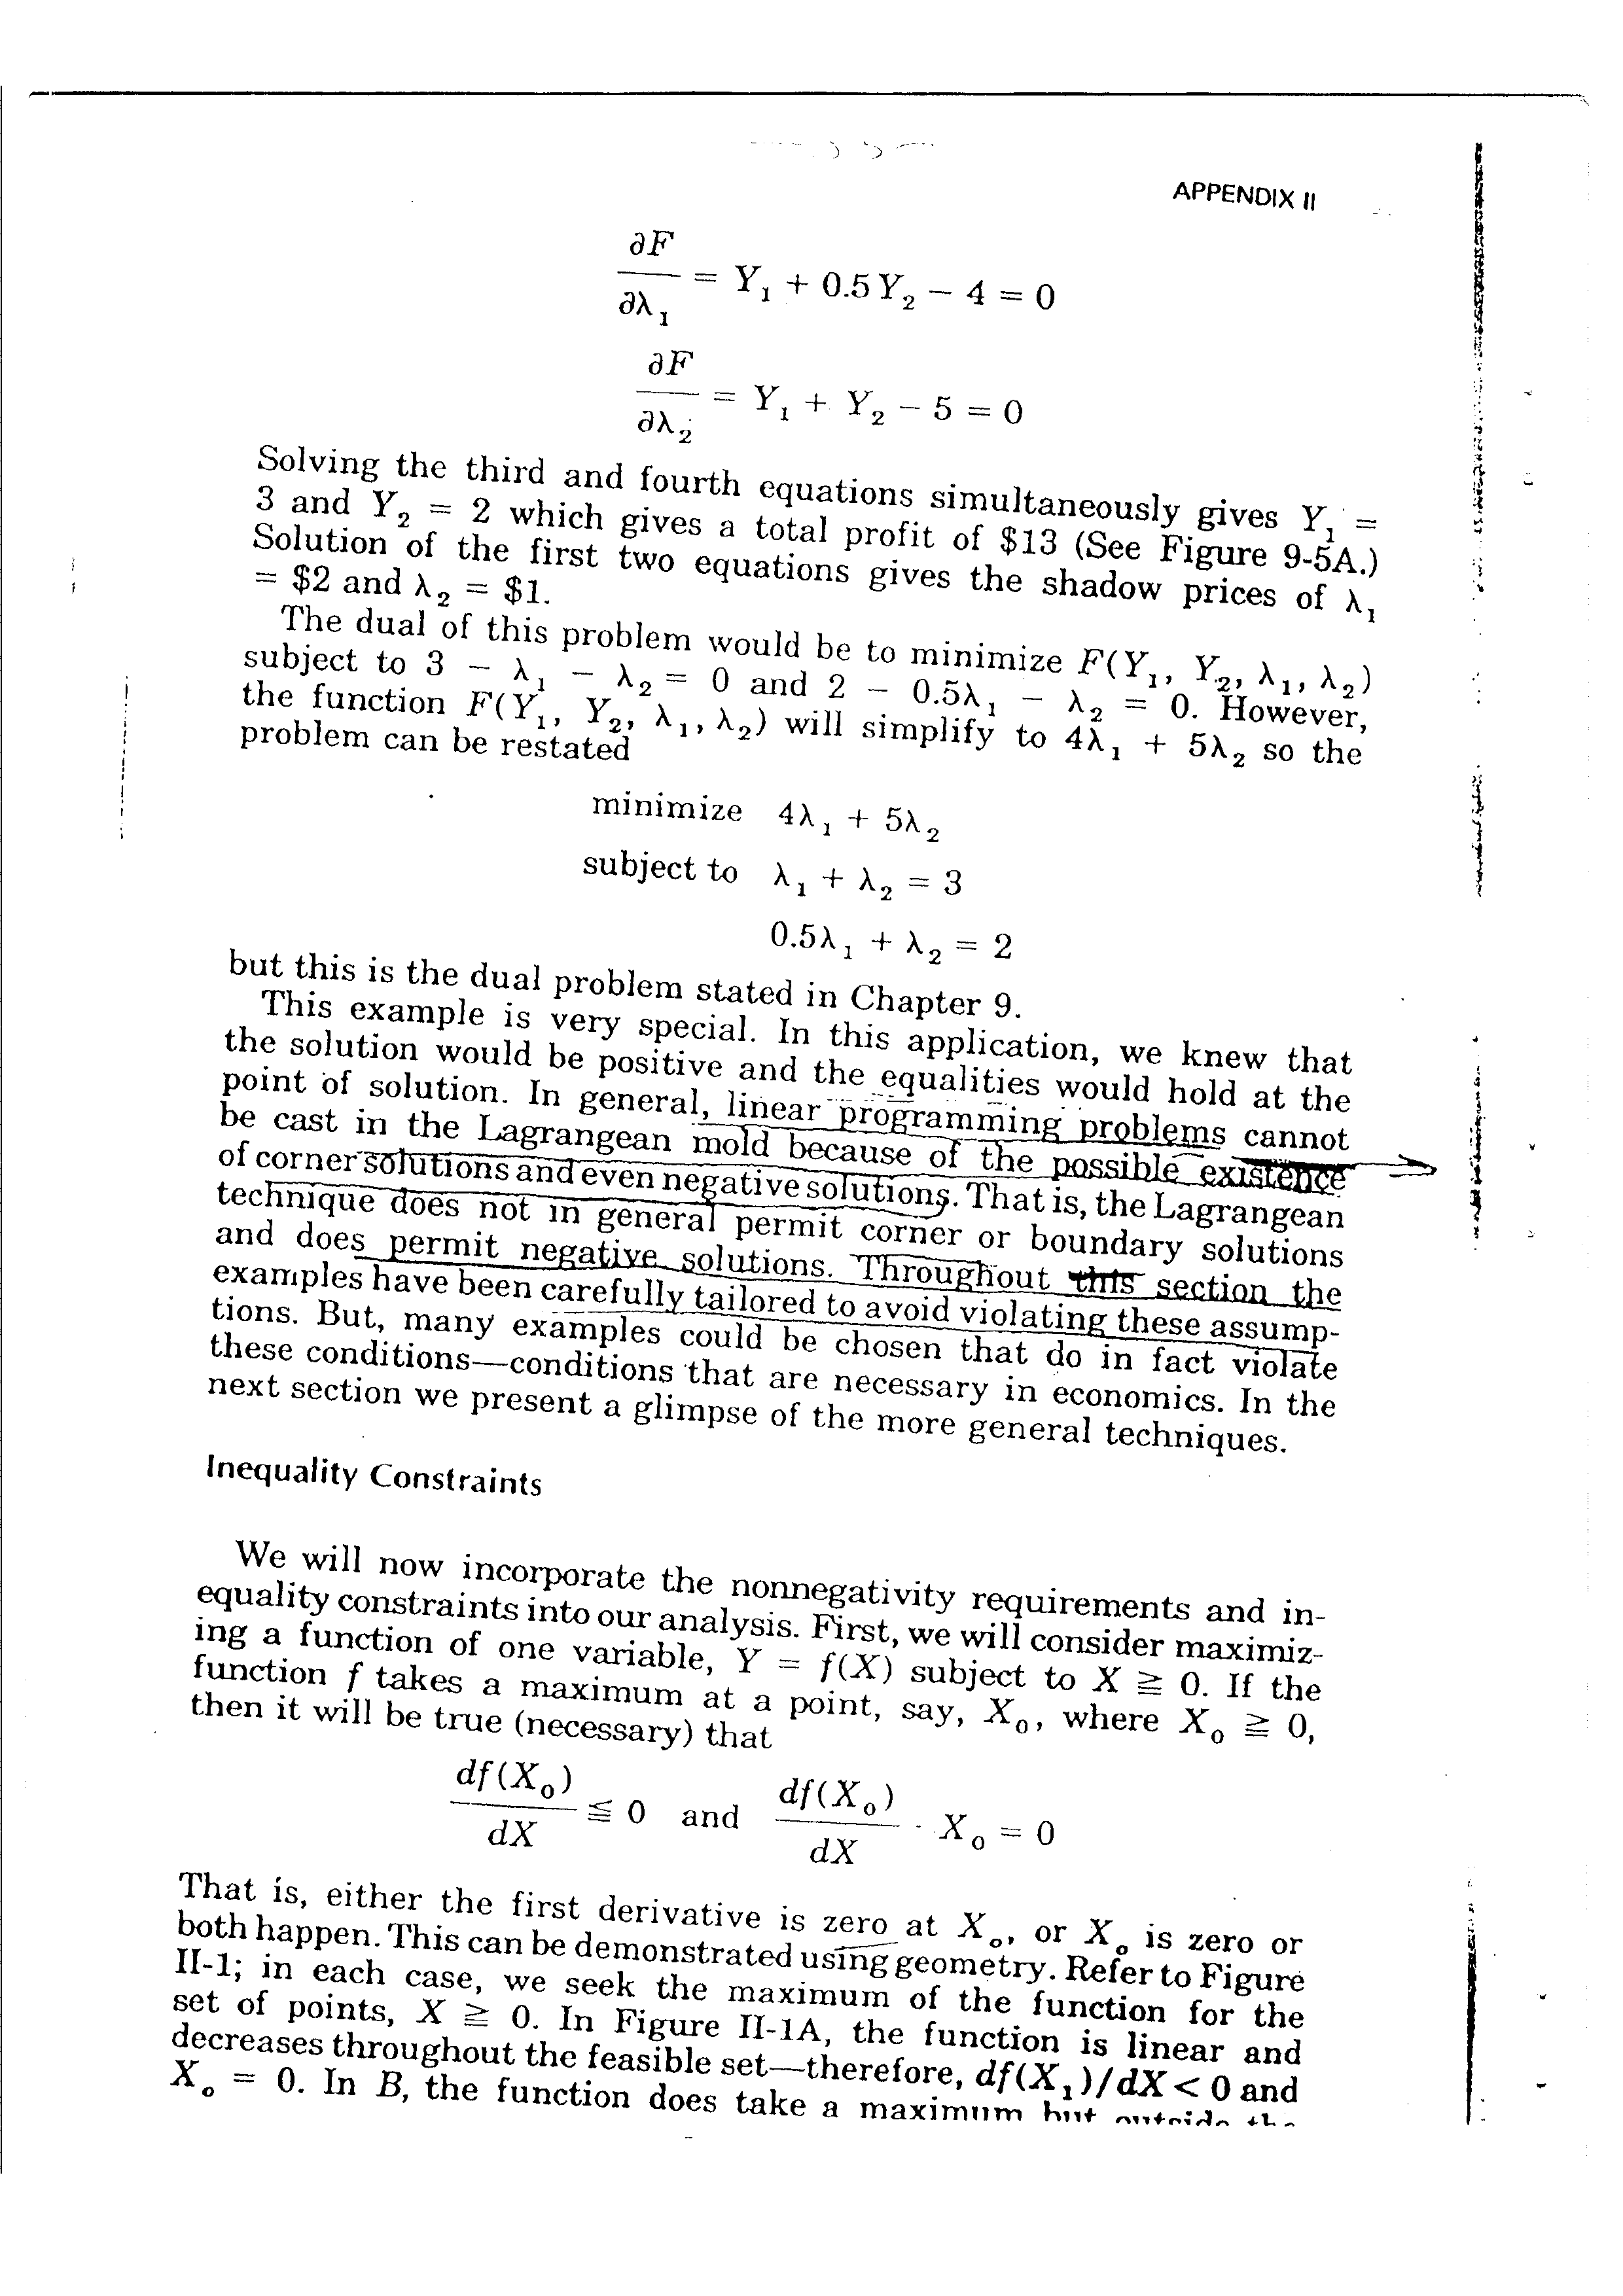 APPENDIX II
∂F/∂λ₁ = Y₁ + 0.5Y₂ − 4 = 0
∂F/∂λ₂ = Y₁ + Y₂ − 5 = 0
Solving the third and fourth equations simultaneously gives Y₁ =
3 and Y₂ = 2 which gives a total profit of $13 (See Figure 9-5A.)
Solution of the first two equations gives the shadow prices of λ₁
= $2 and λ₂ = $1.
The dual of this problem would be to minimize F(Y₁, Y₂, λ₁, λ₂)
subject to 3 − λ₁ − λ₂ = 0 and 2 − 0.5λ₁ − λ₂ = 0. However,
the function F(Y₁, Y₂, λ₁, λ₂) will simplify to 4λ₁ + 5λ₂ so the
problem can be restated
minimize 4λ₁ + 5λ₂
subject to λ₁ + λ₂ = 3
0.5λ₁ + λ₂ = 2
but this is the dual problem stated in Chapter 9.
This example is very special. In this application, we knew that
the solution would be positive and the equalities would hold at the
point of solution. In general, linear programming problems cannot
be cast in the Lagrangean mold because of the possible existence
of corner solutions and even negative solutions. That is, the Lagrangean
technique does not in general permit corner or boundary solutions
and does permit negative solutions. Throughout this section the
examples have been carefully tailored to avoid violating these assump-
tions. But, many examples could be chosen that do in fact violate
these conditions—conditions that are necessary in economics. In the
next section we present a glimpse of the more general techniques.
Inequality Constraints
We will now incorporate the nonnegativity requirements and in-
equality constraints into our analysis. First, we will consider maximiz-
ing a function of one variable, Y = f(X) subject to X ≧ 0. If the
function f takes a maximum at a point, say, X₀, where X₀ ≧ 0,
then it will be true (necessary) that
df(X₀)/dX ≦ 0 and df(X₀)/dX · X₀ = 0
That is, either the first derivative is zero at X₀, or X₀ is zero or
both happen. This can be demonstrated using geometry. Refer to Figure
II-1; in each case, we seek the maximum of the function for the
set of points, X ≧ 0. In Figure II-1A, the function is linear and
decreases throughout the feasible set—therefore, df(X₁)/dX < 0 and
X₀ = 0. In B, the function does take a maximum but outside the